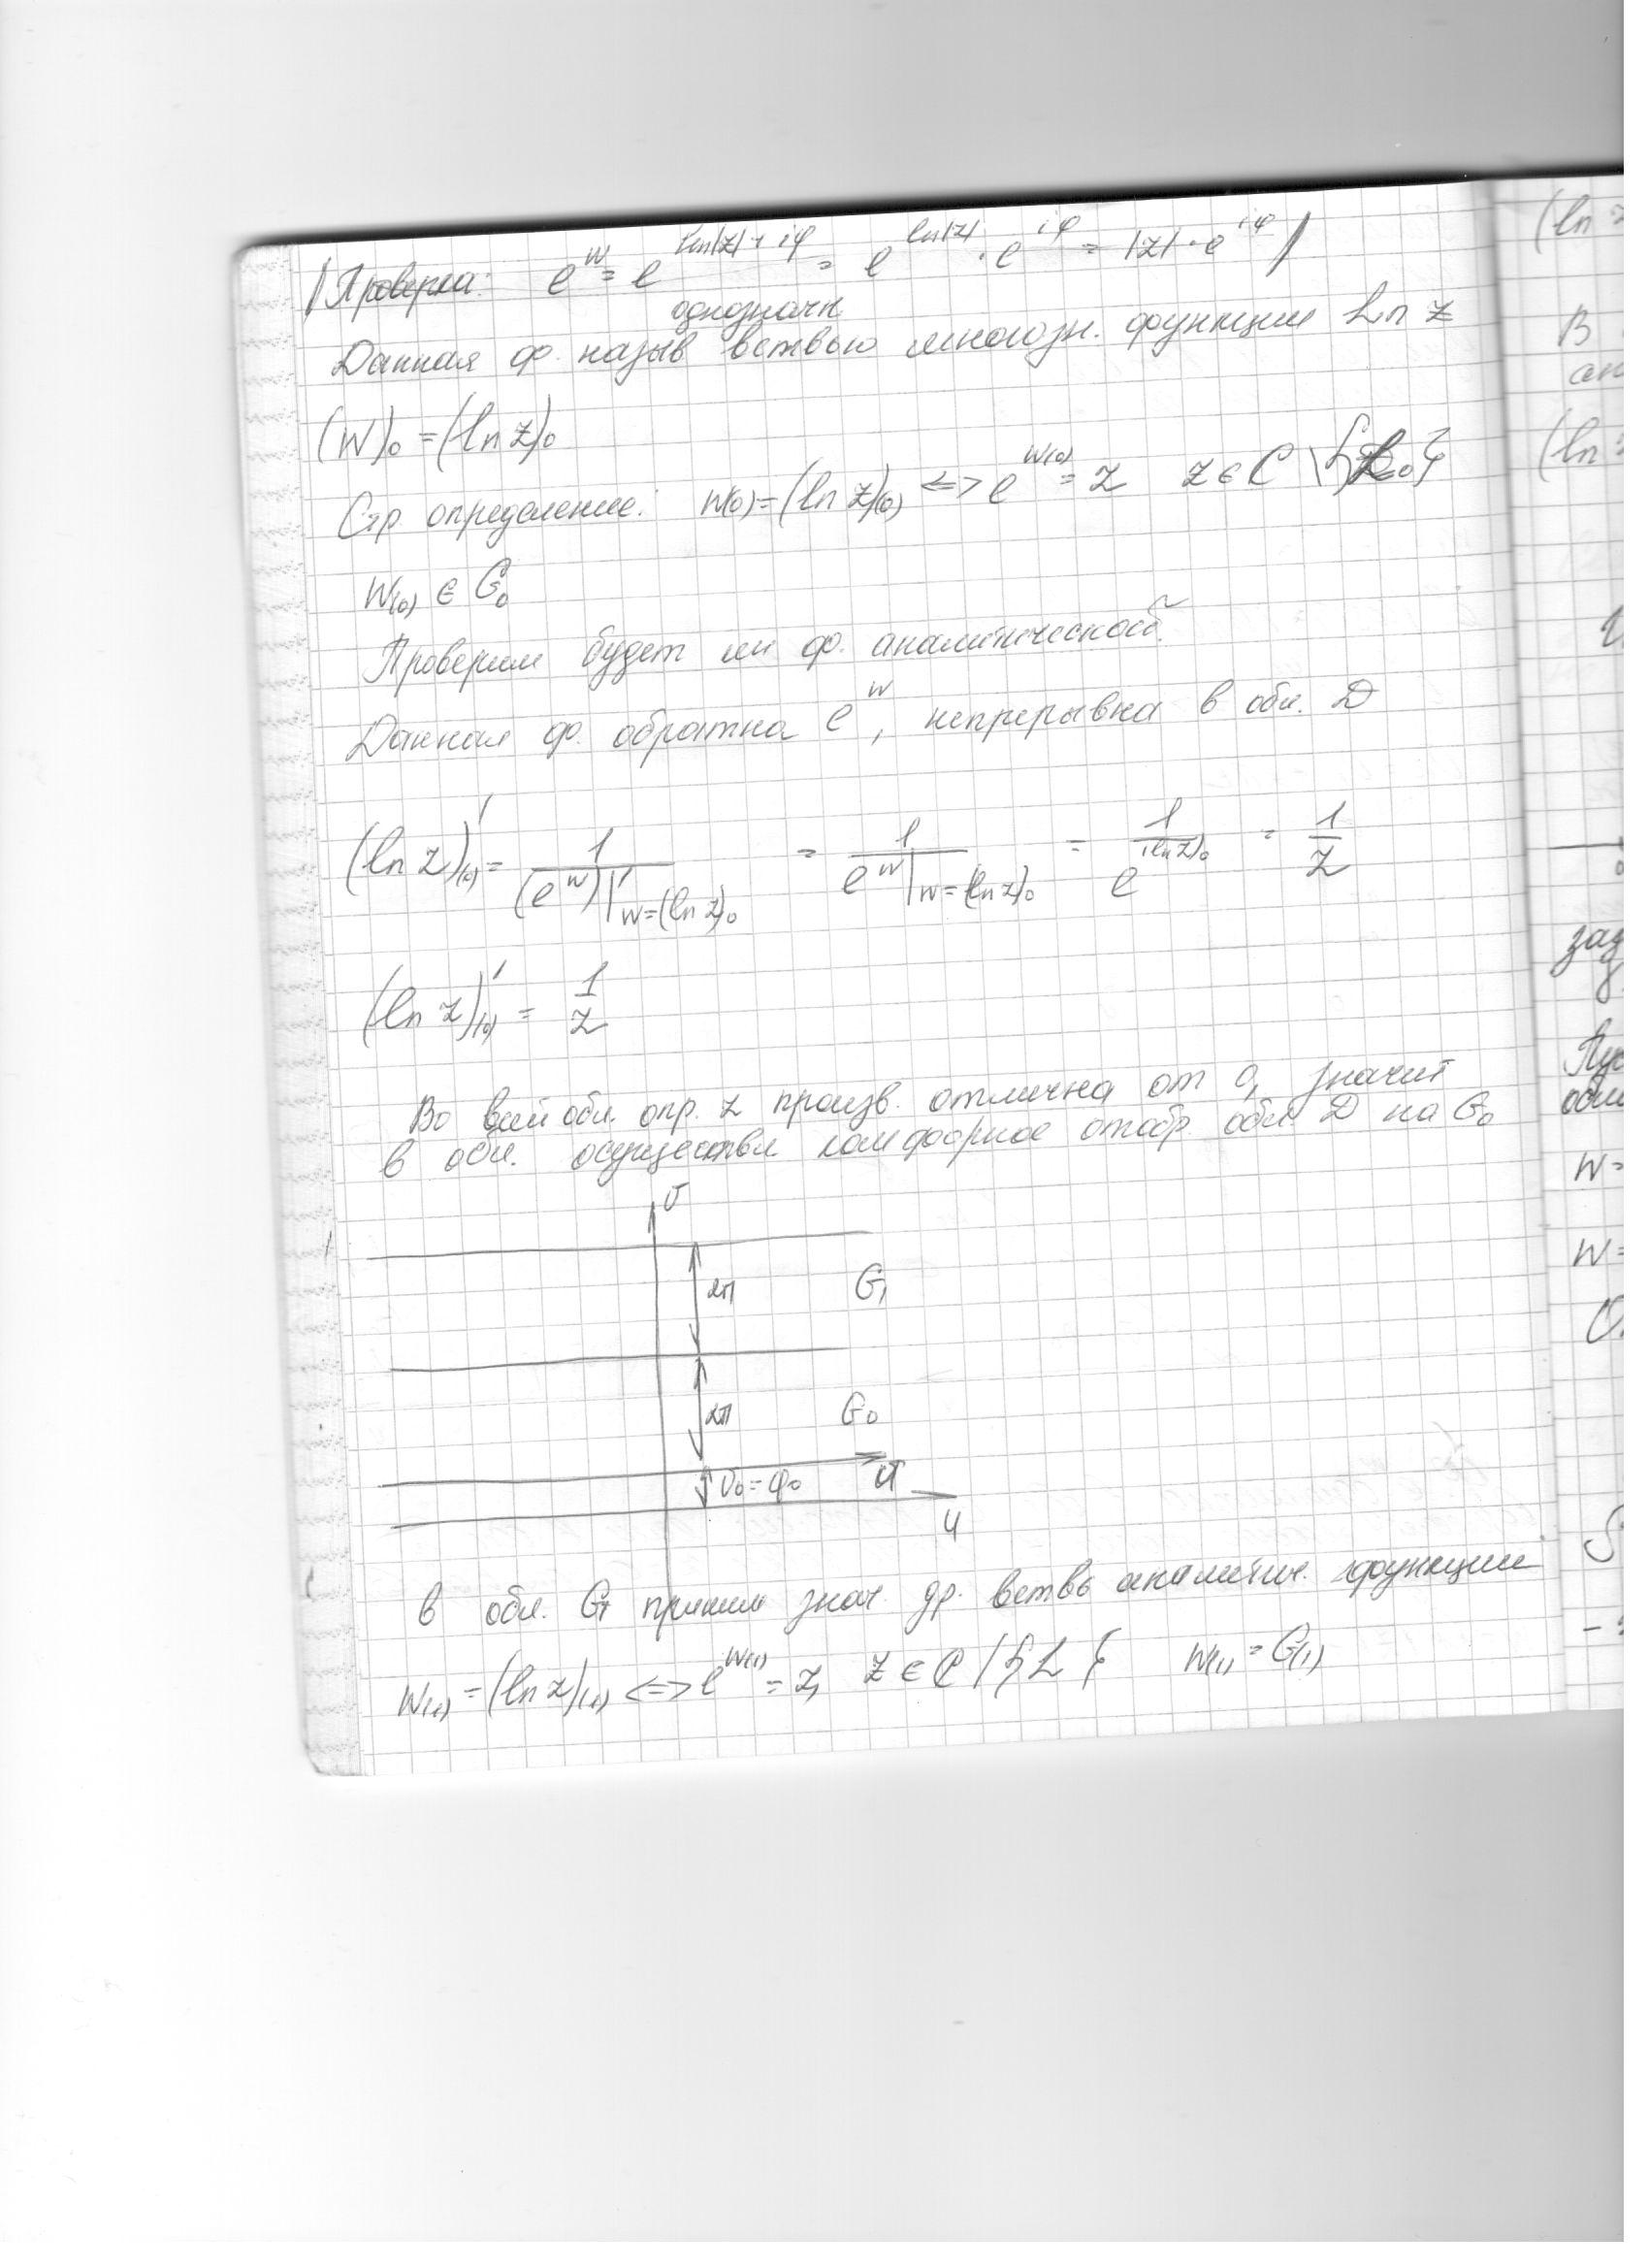 /Проверка: e^w = e^{ln|z| + iφ} = e^{ln|z|} · e^{iφ} = |z| · e^{iφ} /
однозначн.
Данная ф. назыв ветвью многозн. функции Ln z
(w)₀ = (ln z)₀
Стр. определение: w(₀) = (ln z)(₀) <=> e^{w(₀)} = z z ∈ C \ {L₀}
w(₀) ∈ G₀
Проверим будет ли ф. аналитической
Данная ф. обратна e^w, непрерывна в обл. D
(ln z)'(₀) = 1/((e^w)'|w=(ln z)₀) = 1/(e^w|w=(ln z)₀) = 1/e^{(ln z)₀} = 1/z
(ln z)'(₀) = 1/z
Во всей обл. опр. z произв. отлична от 0, значит
в обл. осуществл конформное отобр. обл. D на G₀
v
2π G₁
2π G₀
v₀ = φ₀
u
в обл. G₁ приним знач. др. ветвь аналитич. функции
w(₁) = (ln z)(₁) <=> e^{w(₁)} = z, z ∈ C / {L} w(₁) = G(₁)
(ln z
В
ан
(ln z
0
зад
Пус
обл
w =
w =